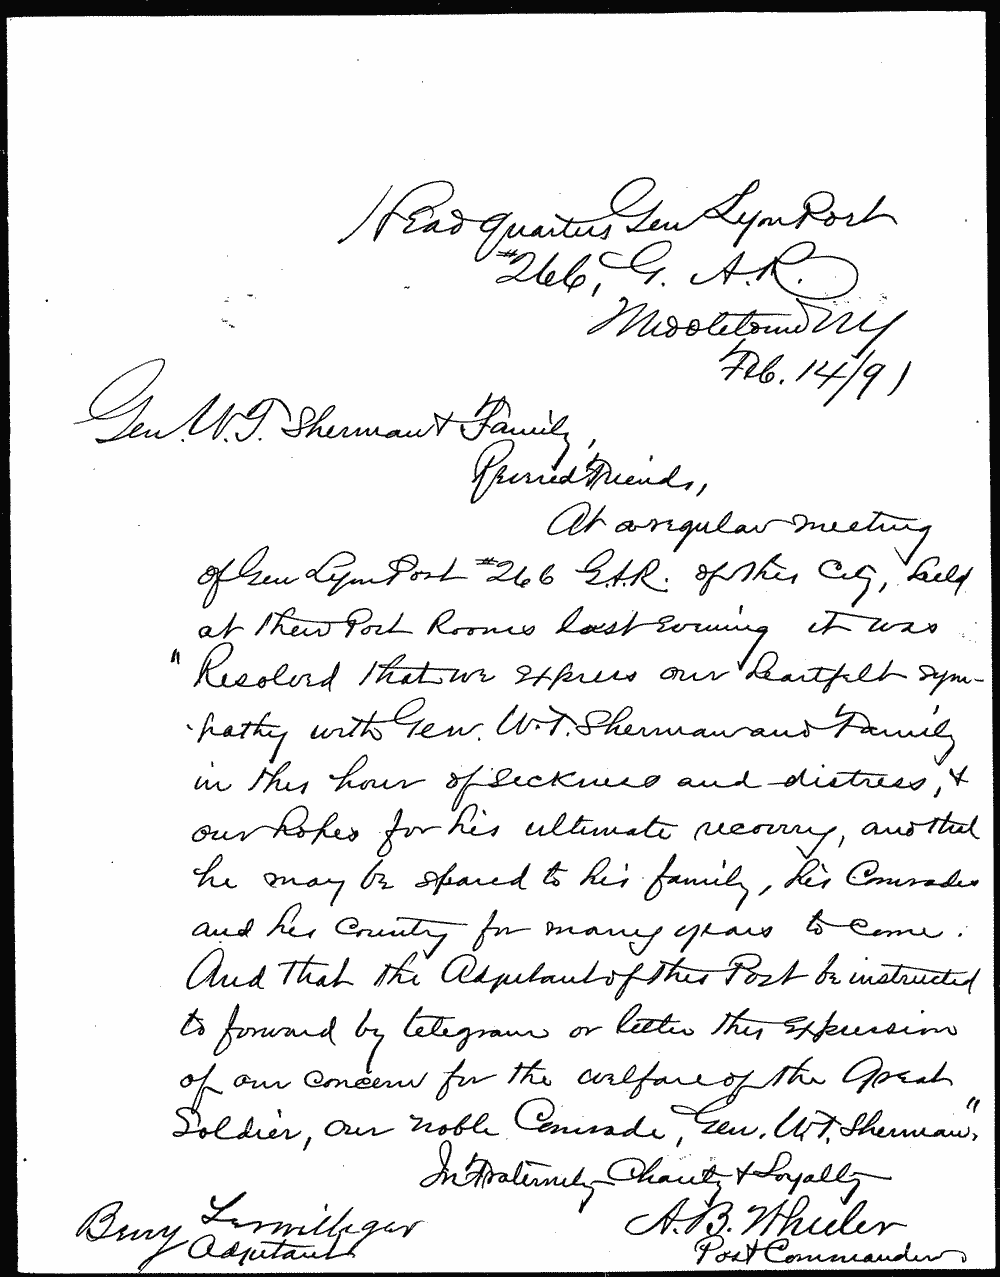 Headquarters Gen Lyon Post
#266, G. A. R.
Middletown NY
Feb. 14/91
Gen. W. T. Sherman & Family,
Revered Friends,
At a regular meeting
of Gen Lyon Post #266 G.A.R. of this City, held
at their Post Rooms last evening it was
"Resolved that we express our heartfelt sym-
pathy with Gen. W. T. Sherman and Family
in this hour of sickness and distress, &
our hopes for his ultimate recovery, and that
he may be spared to his family, his Comrades
and his Country for many years to come.
And that the Adjutant of this Post be instructed
to forward by telegram or letter this expression
of our concern for the welfare of the Great
Soldier, our noble Comrade, Gen. W. T. Sherman."
In Fraternity Charity & Loyalty
A. B. Wheeler
Post Commander
Adjutant